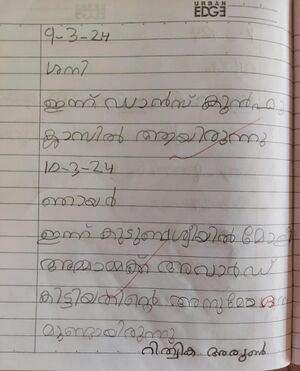 URBAN
EDGE
9-3-24
ശനി
ഇന്ന് ഡാൻസ്
ക്ലാസിൽ ആയിരുന്നു
10-3-24
ഞായർ
ഇന്ന് കുടുബശ്രീയിൽ
അമ്മാമ്മക്ക അവാർഡ്
കിട്ടിയതിന്റെ അനുമോദന
മുണ്ടായിരുന്നു
റിത്വിക അരുൺ